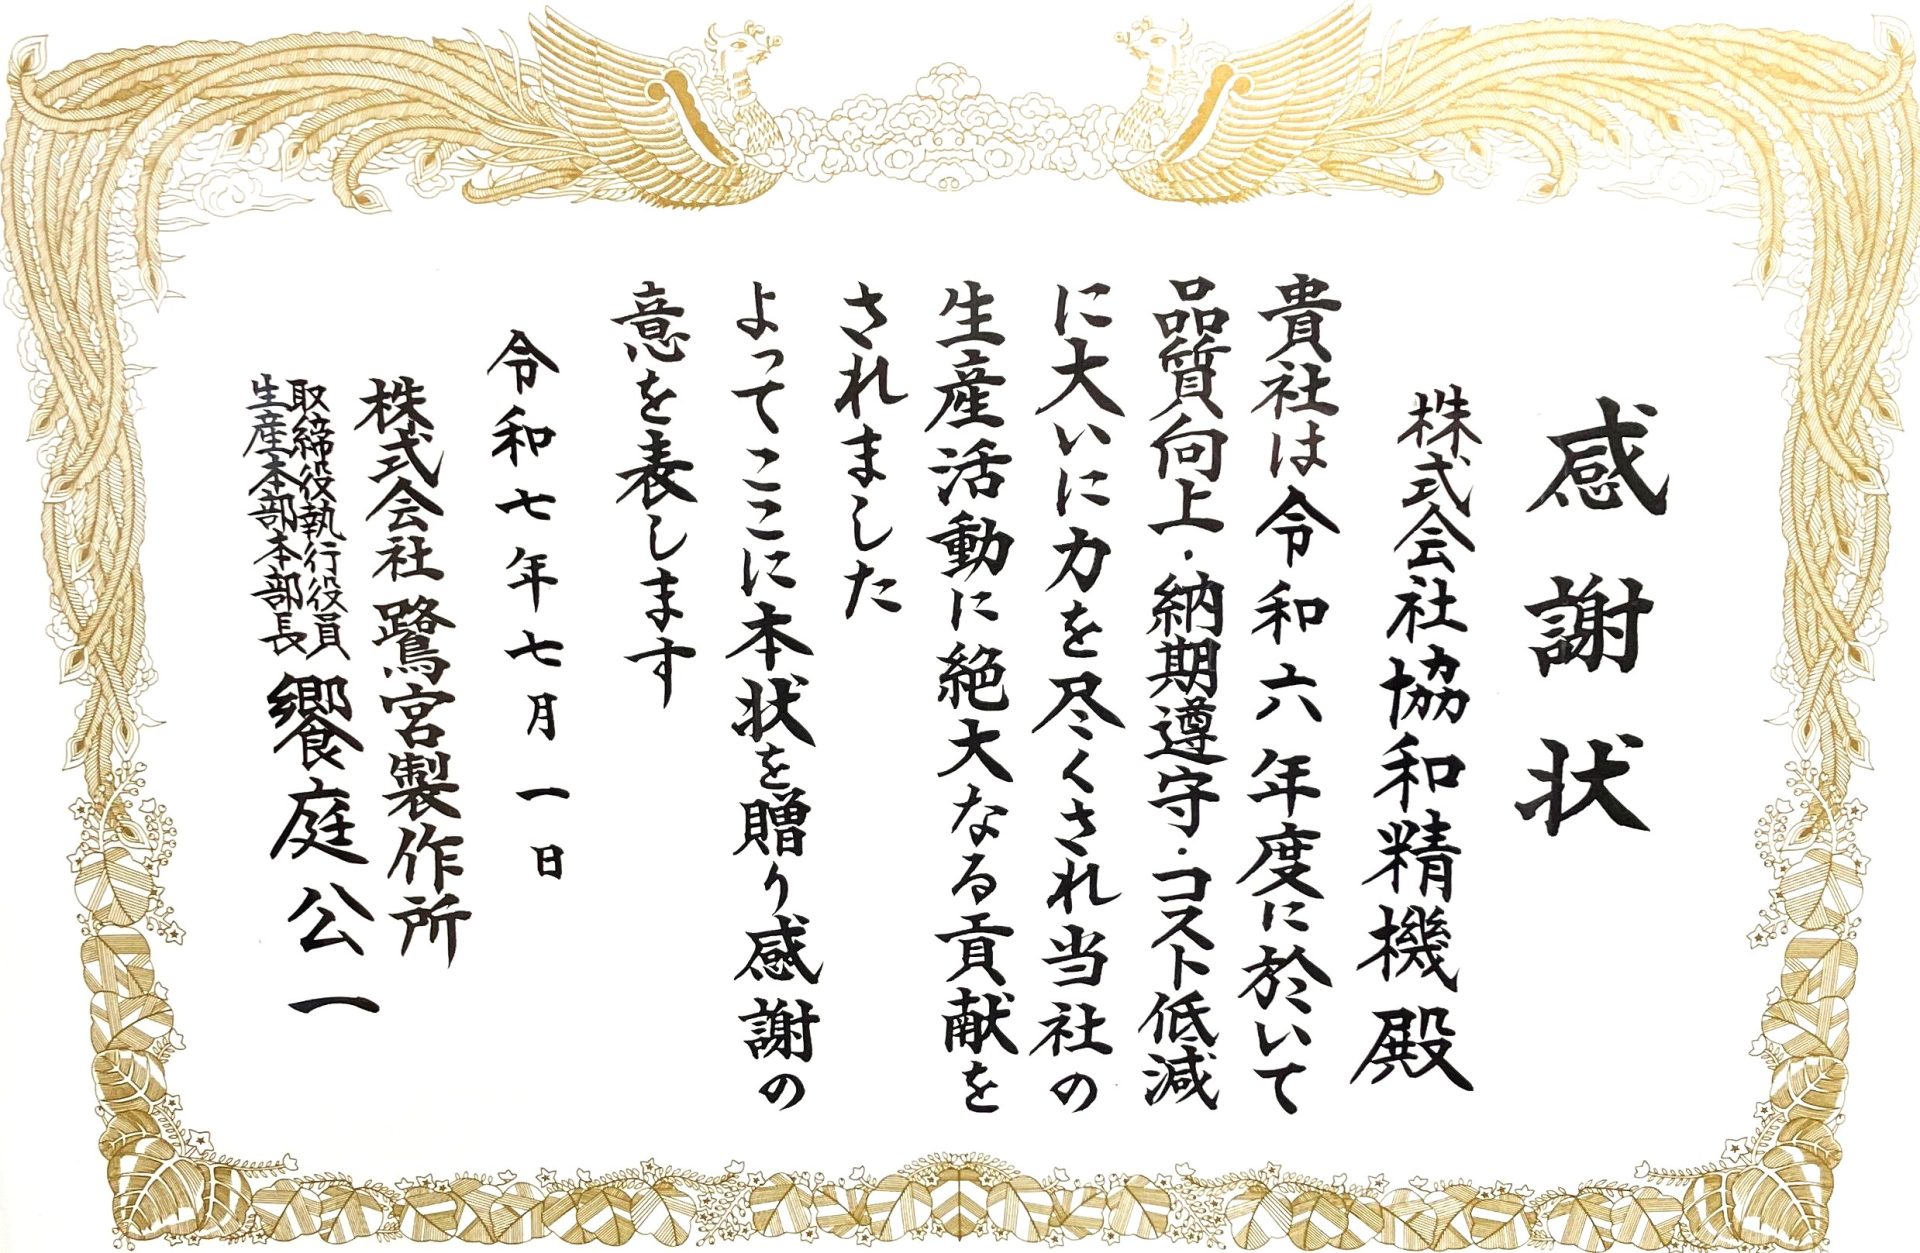 感謝状
株式会社協和精機殿
貴社は令和六年度に於いて
品質向上・納期遵守・コスト低減
に大いに力を尽くされ当社の
生産活動に絶大なる貢献を
されました
よってここに本状を贈り感謝の
意を表します
令和七年七月一日
株式会社鷺宮製作所
取締役執行役員
生産本部本部長
饗庭公一